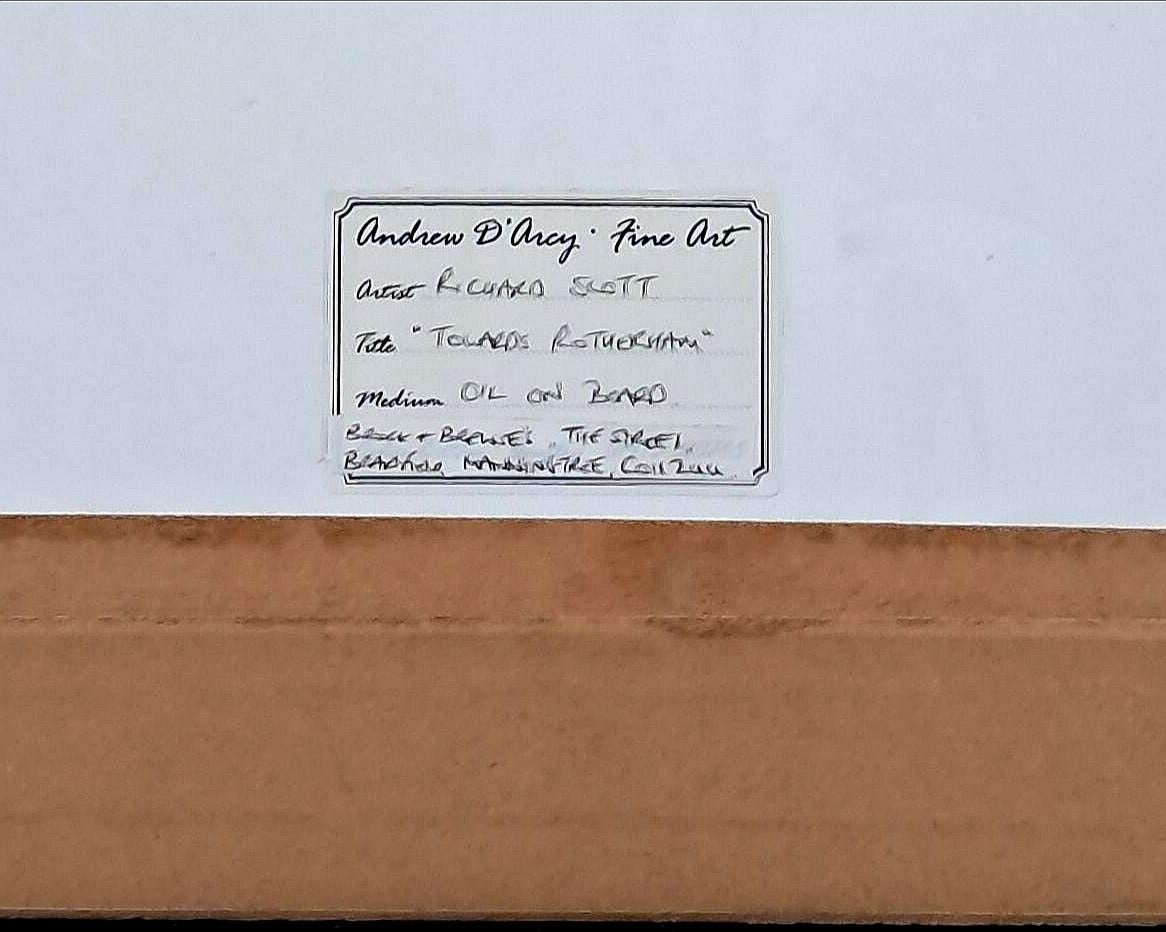 Andrew D'Arcy · Fine Art
Artist RICHARD SCOTT
Title "TOWARDS ROTHERHAM"
Medium OIL ON BOARD
THE STREET,
BRADFIELD, MANNINGTREE, CO11 2UU